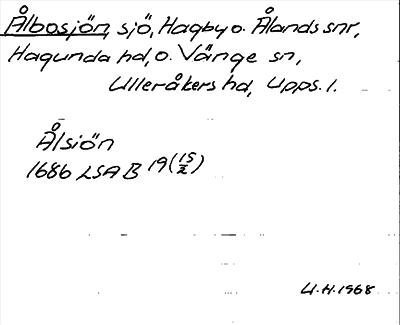 Ålbosjön, sjö, Hagby o. Ålands snr,
Hagunda hd, o. Vänge sn,
Ulleråkers hd, Upps. l.
Ålsiön
1686 LSA B 19 (15/2)
U.H. 1968